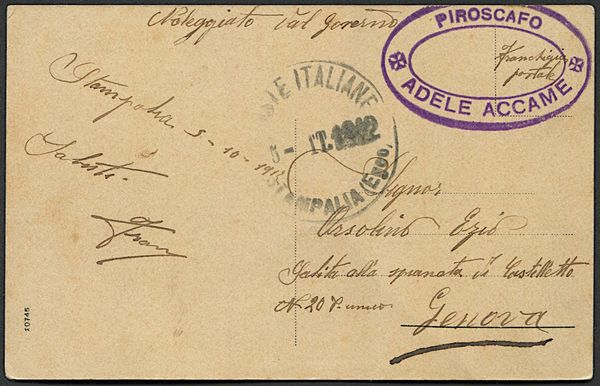 Noleggiato dal Governo
PIROSCAFO
ADELE ACCAME
Franchigia
postale
STE ITALIANE
5 - OTT. 1912
STAMPALIA (Egeo)
Stampalia 5-10-912
Saluti
Signor
Orsolino Ezio
Salita alla spianata di Castelletto
N. 20 P. unico
Genova
10745